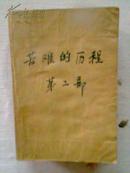 苦难的历程
第二部